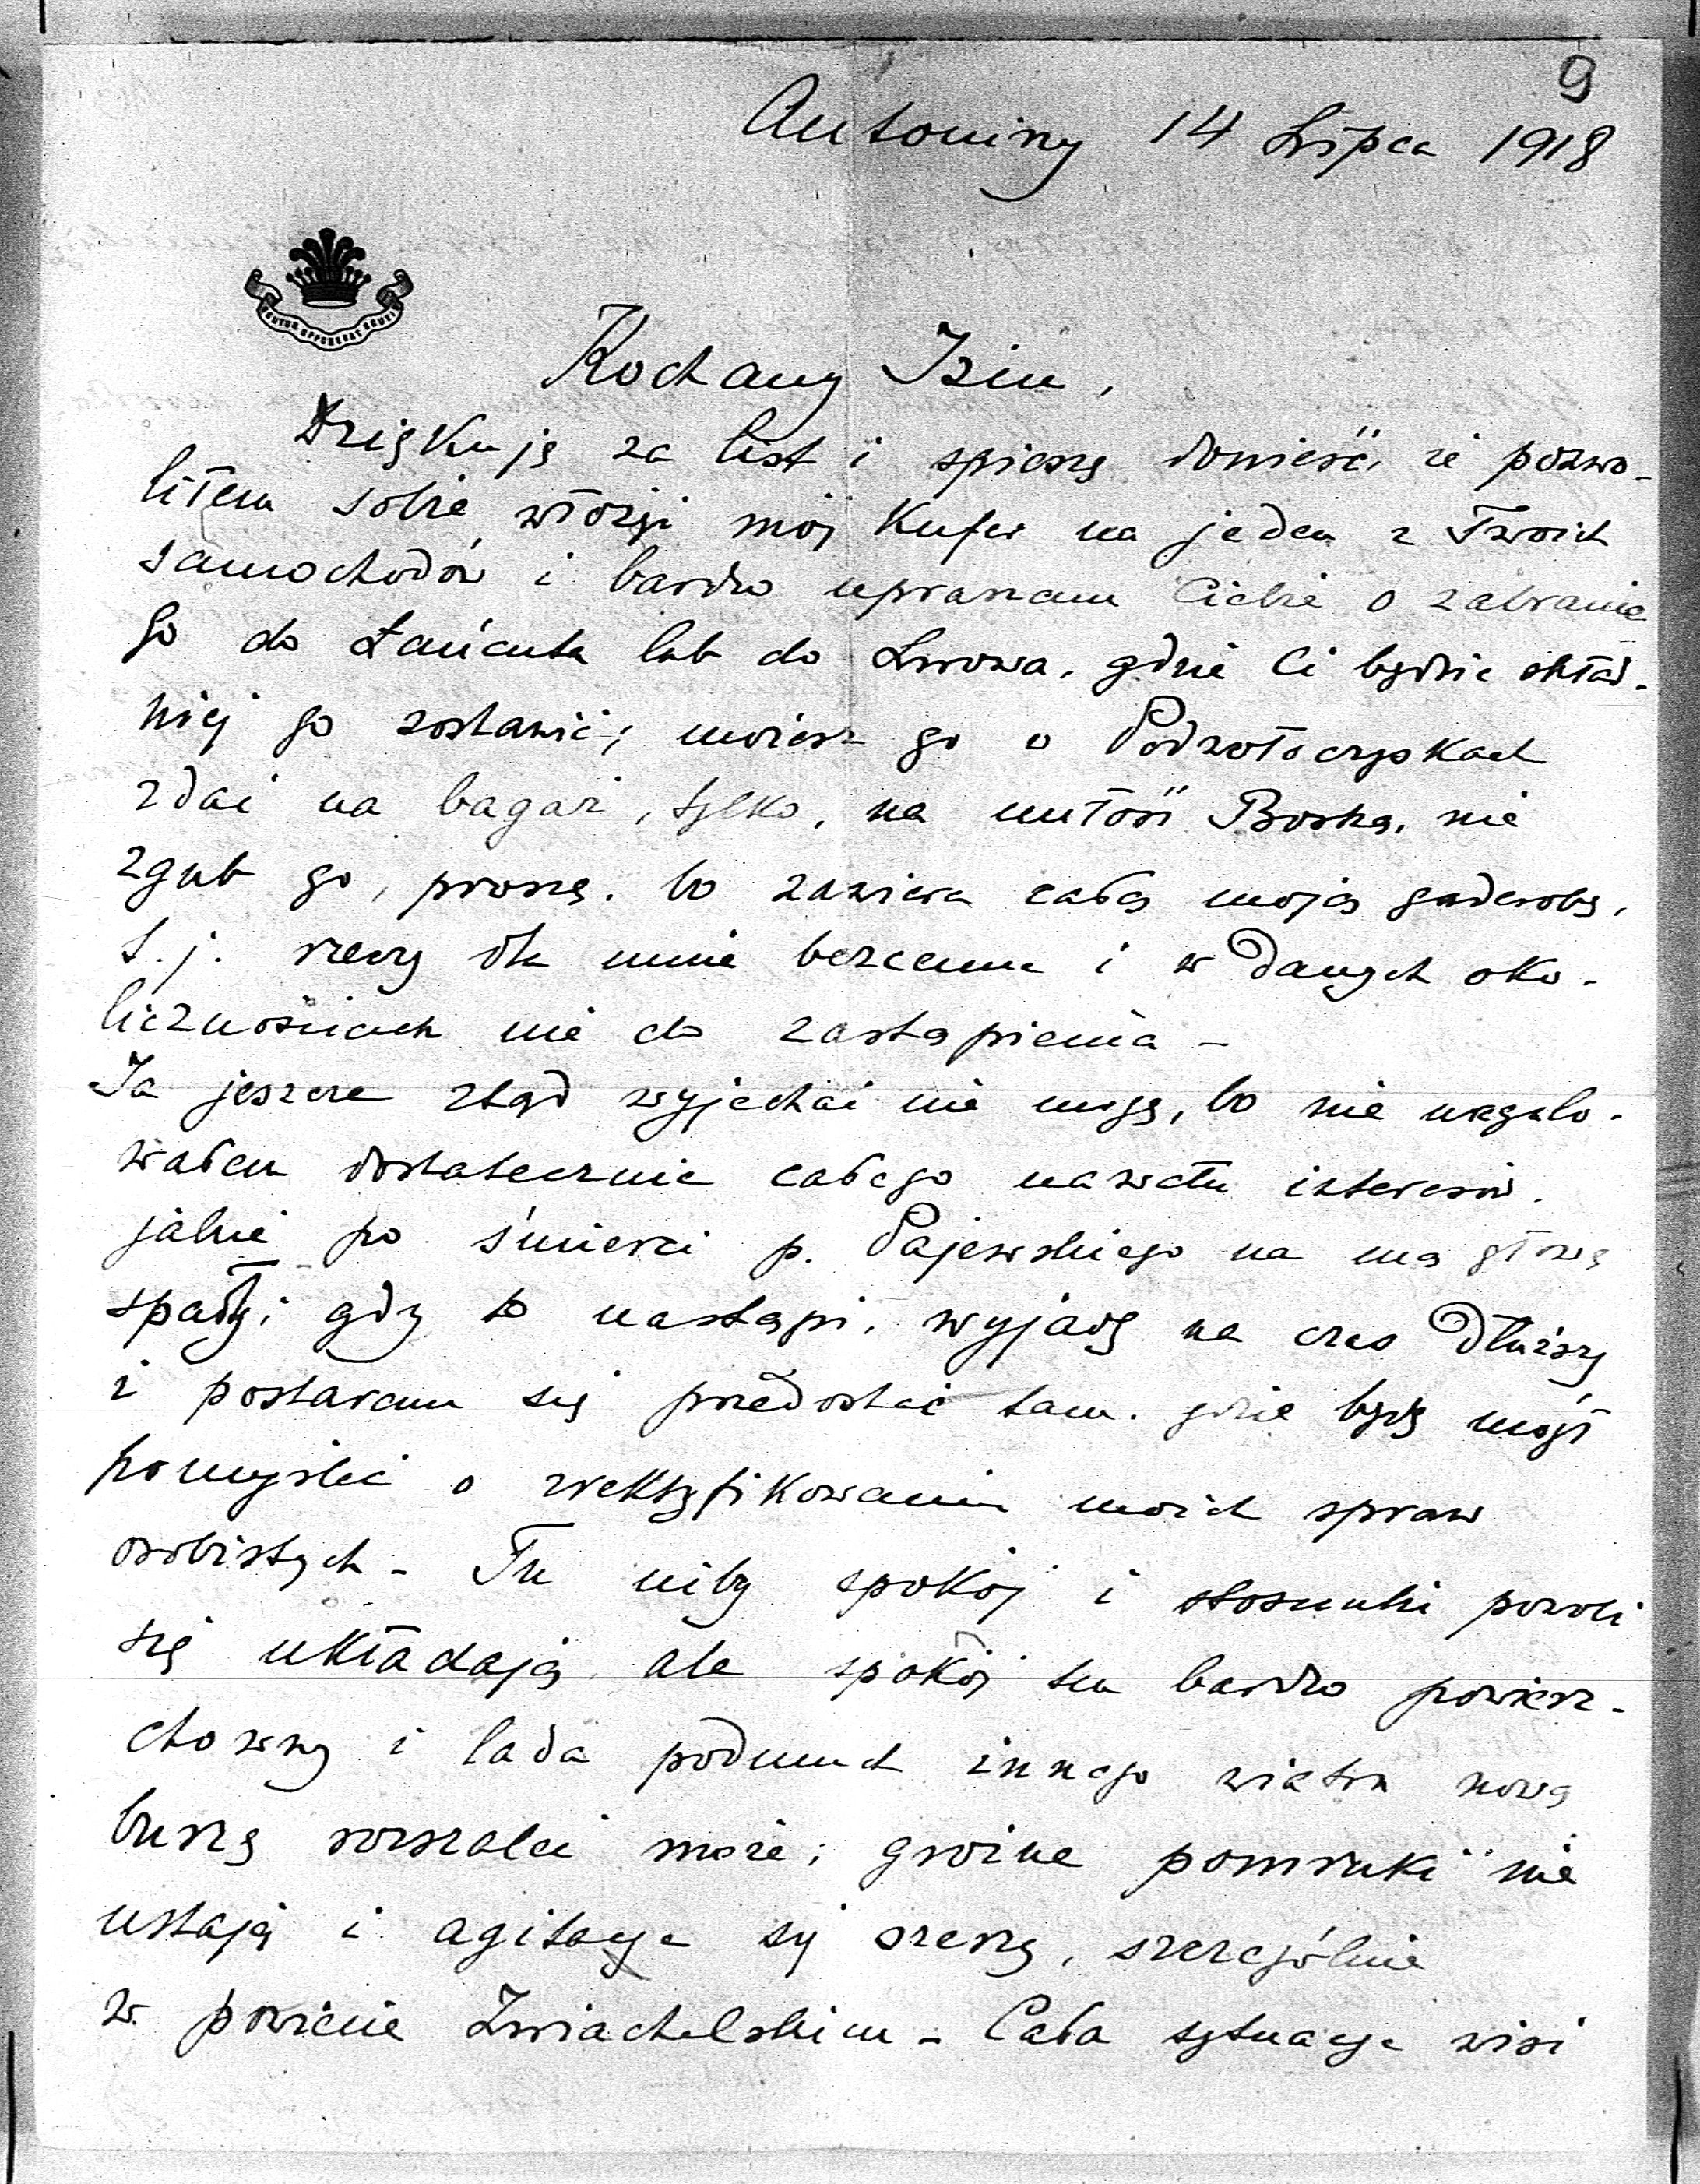 9
Antoniny 14 Lipca 1918
Kochany Iziu,
Dziękuję za list i spieszę donieść, że pozwo-
liłem sobie włożyć mój Kufer na jeden z Twoich
samochodów i bardzo upraszam Ciebie o zabranie
go do Łańcuta lub do Lwowa, gdzie Ci będzie skład-
niej go zostawić; możesz go w Podwołoczyskach
zdać na bagaż, tylko, na miłość Boską, nie
zgub go, proszę, bo zawiera całą moją garderobę,
t.j. rzeczy dla mnie bezcenne i w danych oko-
licznościach nie do zastąpienia -
Ja jeszcze ztąd wyjechać nie mogę, bo nie uregulo-
wałem dostatecznie całego nawału interesów,
jakie po śmierci p. Pajewskiego na mą głowę
spadły; gdy to nastąpi, wyjadę na czas dłuższy
i postaram się przedostać tam, gdzie będę mógł
pomyśleć o zrektyfikowaniu moich spraw
osobistych - Tu niby spokój i stosunki powoli
się układają, ale spokój ten bardzo powierz-
chowny i lada podmuch innego wiatru nową
burzę rozszaleć może; groźne pomruki nie
ustają i agitacya się szerzy, szczególnie
w powiecie Zwiachelskim - Cała sytuacya wisi